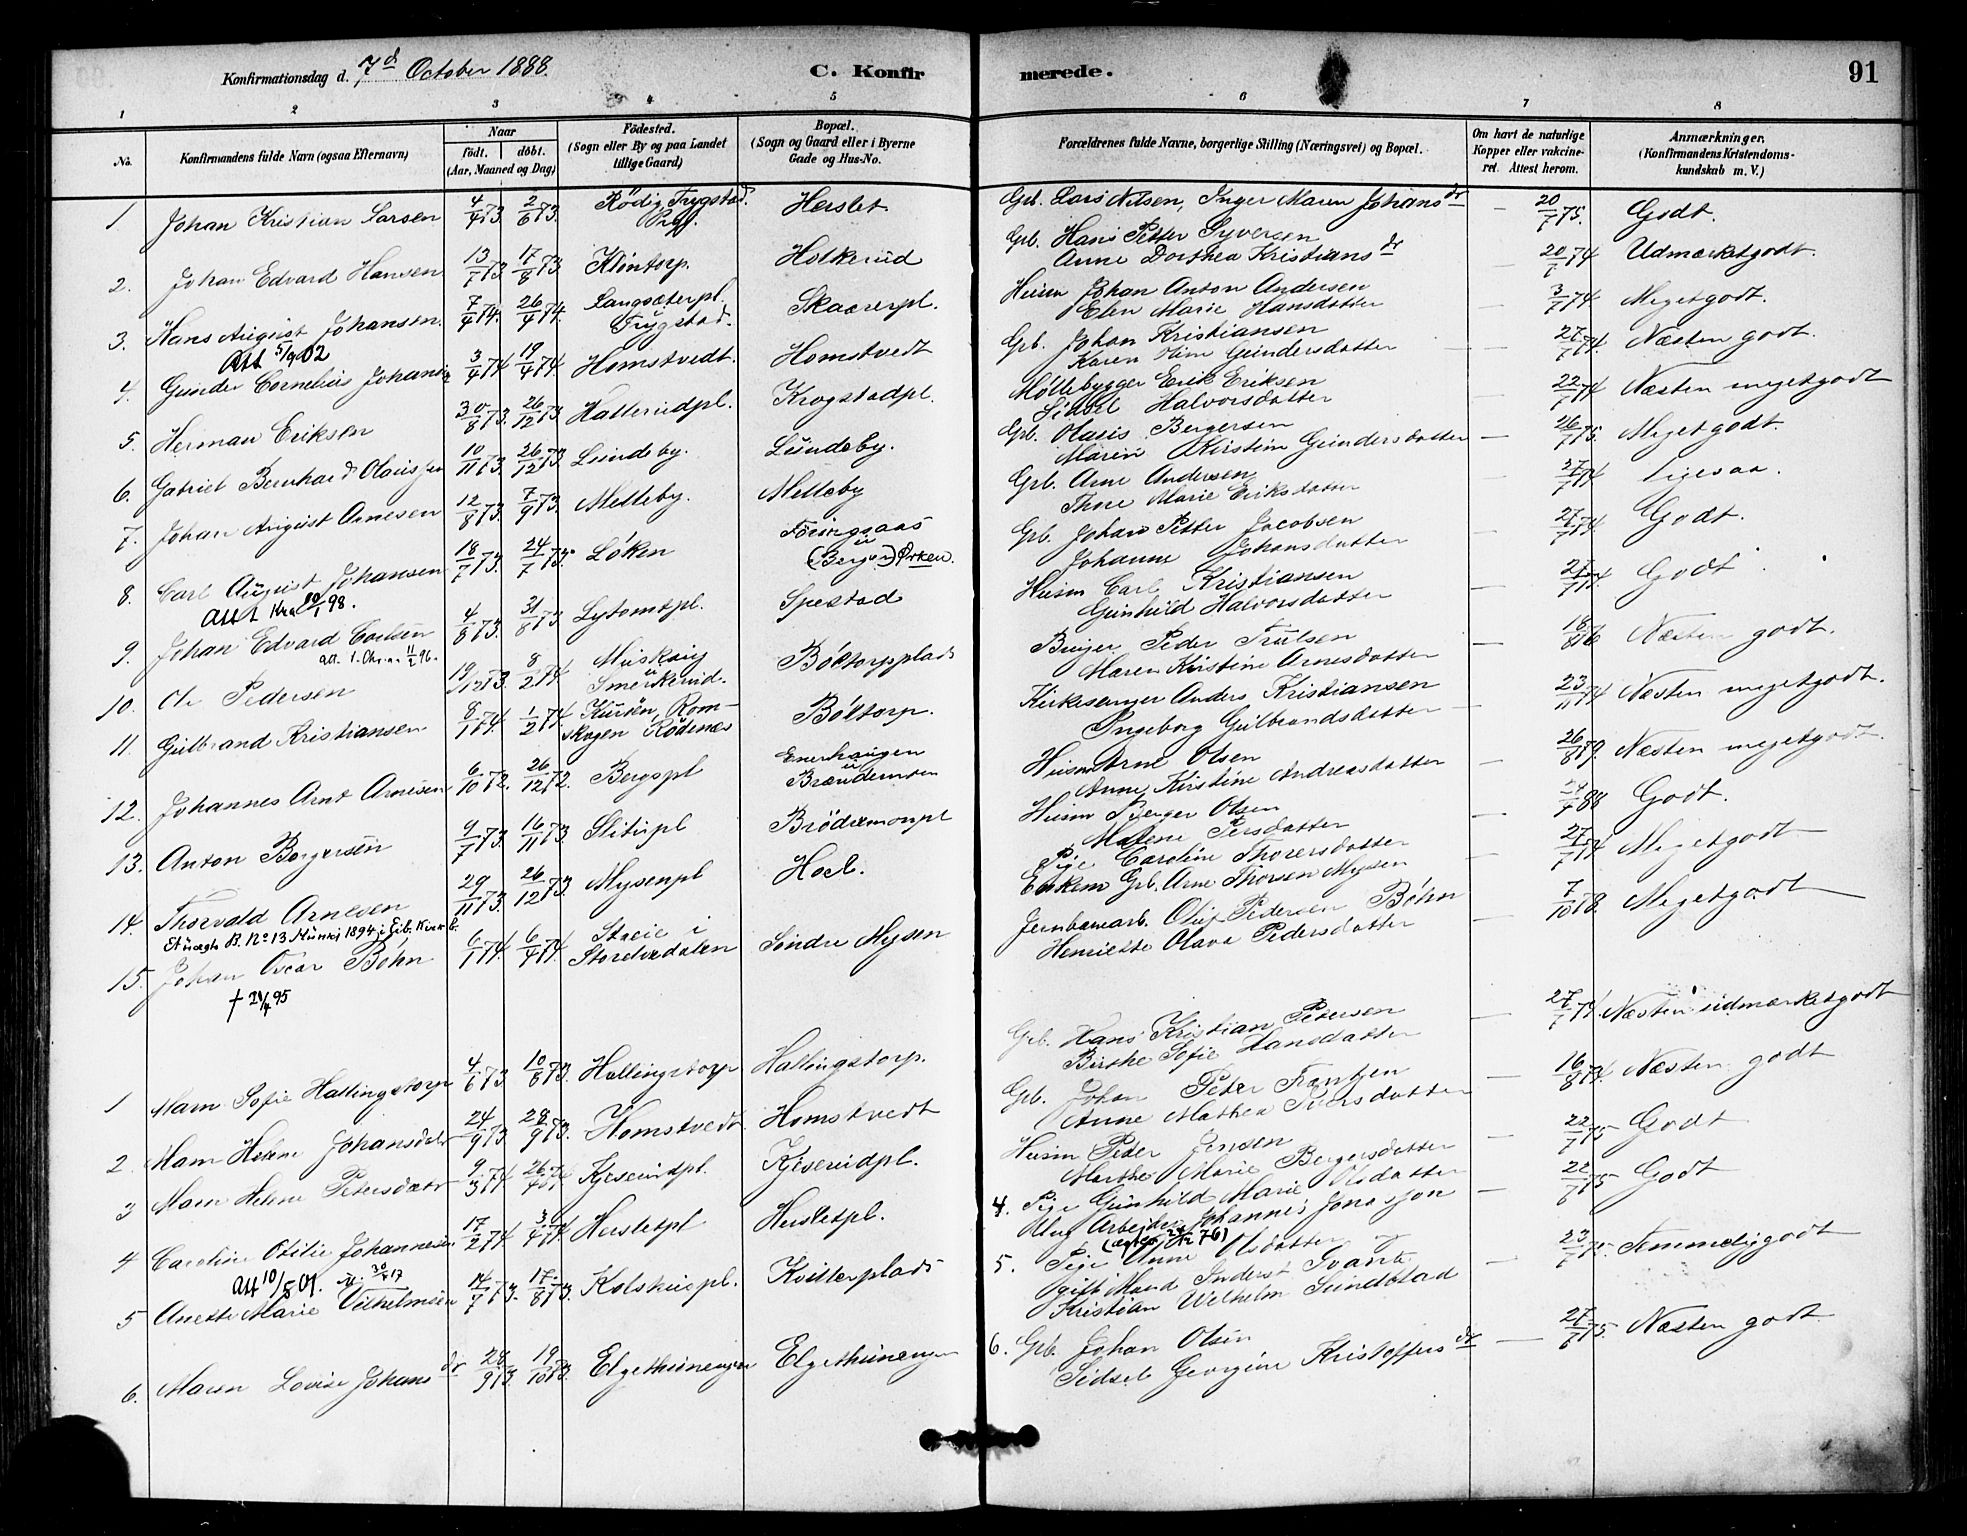 Konfirmationsdag d. 7d October 1888.
C. Konfirmerede.
91
1 2 3 4 5 6 7 8
No.
Konfirmandens fulde Navn (ogsaa Efternavn)
Naar
födt. döbt.
(Aar, Maaned og Dag)
Födested.
(Sogn eller By og paa Landet
tillige Gaard)
Bopæl.
(Sogn og Gaard eller i Byerne
Gade og Hus-No.
Forældrenes fulde Navne, borgerlige Stilling (Næringsvei) og Bopæl.
Om havt de naturlige
Kopper eller vakcine-
ret. Attest herom.
Anmærkninger.
(Konfirmandens Kristendoms-
kundskab m. V.)
1 Johan Kristian Larsen 4/4 73 2/6 73. Rödig, Trygstad Herslet Gbr. Lars Nilsen, Inger Maren Johansdr — 20/7 75. Godt.
2. Johan Edvard Hansen 13/7 73 17/8 73. Klöntorp. Holkerud Gbr. Hans Petter Syversen
Anne Dorthea Kristiansdr — 20/7 74 Udmærketgodt.
3. Hans August Johansen. 7/4 74. 26/4 74. Langsæterpl. Trygstad. Skaarerpl. Husm Johan Anton Andersen
Elen Marie Hansdatter — 3/7 74 Megetgodt.
Att 5/9 02
4. Gunder Cornelius Johansen 3/4 74 19/4 74. Homstvedt. Homstvedt Gbr. Johan Kristiansen
Karen Oline Gundersdatter — 27/7 74. Næsten godt.
5. Herman Eriksen 30/8 73. 26/12 73 Hatterudpl. Krogstadpl. Möllebygger Erik Eriksen
Sidsel Halvorsdatter — 22/7 74 Næsten megetgodt
6. Gabriel Bernhard Olaussen 10/11 73. 26/12 73. Lundeby. Lundeby. Gbr. Olaus Bergersen
Maren Kirstine Gundersdatter — 26/7 75. Megetgodt.
7. Johan August Arnesen 12/8 73. 7/9 73. Melleby. Melleby Gbr. Arne Andersen
Thne Marie Eriksdatter — 27/7 74 Ligesaa.
8. Carl August Johansen 18/7 73. 24/7 73. Löken Fosingsaas
(Berger) Örken. Gbr. Johan Petter Jacobsen
Johanne Johansdatter — 27/7 74 Godt.
Att Kra 10/1 98.
9. Johan Edvard Carlsen 4/8 73. 31/8 73 Lytomtpl. Spestad Husm Carl Kristiansen
Gunhild Halvorsdatter — 27/7 74 Godt.
att. t. Chr.a 11/2 96.
10. Ole Pedersen 19/12 73. 8/2 74 Muskaug
Smerkerud. Böltorpplads Peder Trulsen
Maren Kristine Arnesdatter — 18/8 76 Næsten godt.
11. Gulbrand Kristiansen 8/1 74. 1/2 74. Kurøen, Rom-
skogen Rödenæs Böltorp. Kirkesanger Anders Kristiansen
Ingeborg Gulbrandsdatter — 23/11 74 Næsten megetgodt.
12. Johannes Arnt Arnesen 6/10 72. 26/12 72. Bergspl Enerhaugen
Brændemoen Husm Arne Olsen
Anne Kirstine Andreasdatter — 26/8 79. Næsten megetgodt.
13. Anton Bergersen 9/7 73. 16/11 73. Slitupl Brödremonpl Husm Berger Olsen
Malene Persdatter — 88 Godt.
14. Thorvald Arnesen 29/11 73. 26/12 73. Mysenpl Hoel. Pige Caroline Thoresdatter
Enkem Gbr. Arne Thorsen Mysen — 27/7 74 Megetgodt
15. Johan Oscar Böhn 6/1 74. 6/4 74. Staeie i
Storelvedalen Söndre Mysen Jernbanearb. Oluf Pedersen Böhn
Henriette Olava Pedersdatter — 7/10 78. Megetgodt
† 21/4 95
1 Maren Sofie Hallingstorp 4/6 73 10/8 73. Hallingstorp Hallingstorp. Gbr. Hans Kristian Petersen
Birthe Sofie Hansdatter — 27/7 74. Næsten udmærketgodt
2 Maren Helene Johansdatr 24/9 73. 28/9 73. Homstvedt Homstvedt Gbr. Johan Peter Frantzen
Anne Mathea Iversdatter — 16/8 74. Næsten godt
3 Maren Helene Petersdatr 9/3 74 26/4 74 Kjeserudpl. Kjeserudpl. Husm Peder Jensen
Marthe Marie Bergersdatter — 22/7 75 Godt
4 Caroline Otilie Johannesen 17/2 74 3/4 74 Hersletpl Hersletpl. 4. Pige Gunhild Marie Olsdatter
Ung Arbeider Johannes Jonasson — 22/6 75 Godt
Att 10/5 01.
5 Anette Marie Vilhelmsen 14/7 73. 17/8 73. Kolskupl. Kvitterplads 5. Pige Anne Olsdatter
gift Mand Inderst Svante
Kristian Wilhelm Sundblad — 23/7 75. Temmeliggodt
6. Maren Lovise Johansdr 28/9 73. 19/10 73. Elgethunengen Elgethunengen 6. Gbr. Johan Olsen
Sidsel Georgine Kristoffersdr — 27/6 75 Næsten godt